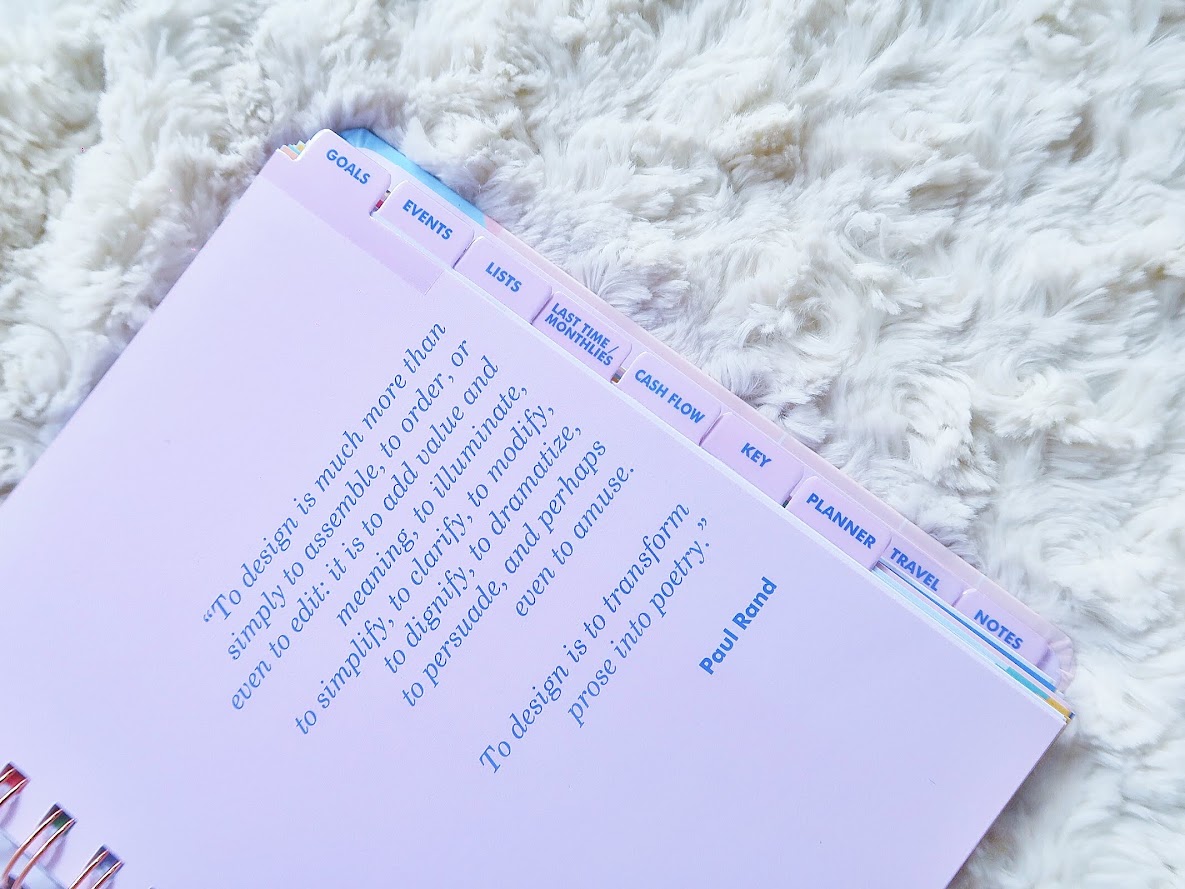 GOALS
EVENTS
LISTS
LAST TIME /
MONTHLIES
CASH FLOW
KEY
PLANNER
TRAVEL
NOTES
“To design is much more than
simply to assemble, to order, or
even to edit: it is to add value and
meaning, to illuminate,
to simplify, to clarify, to modify,
to dignify, to dramatize,
to persuade, and perhaps
even to amuse.
To design is to transform
prose into poetry.”
Paul Rand